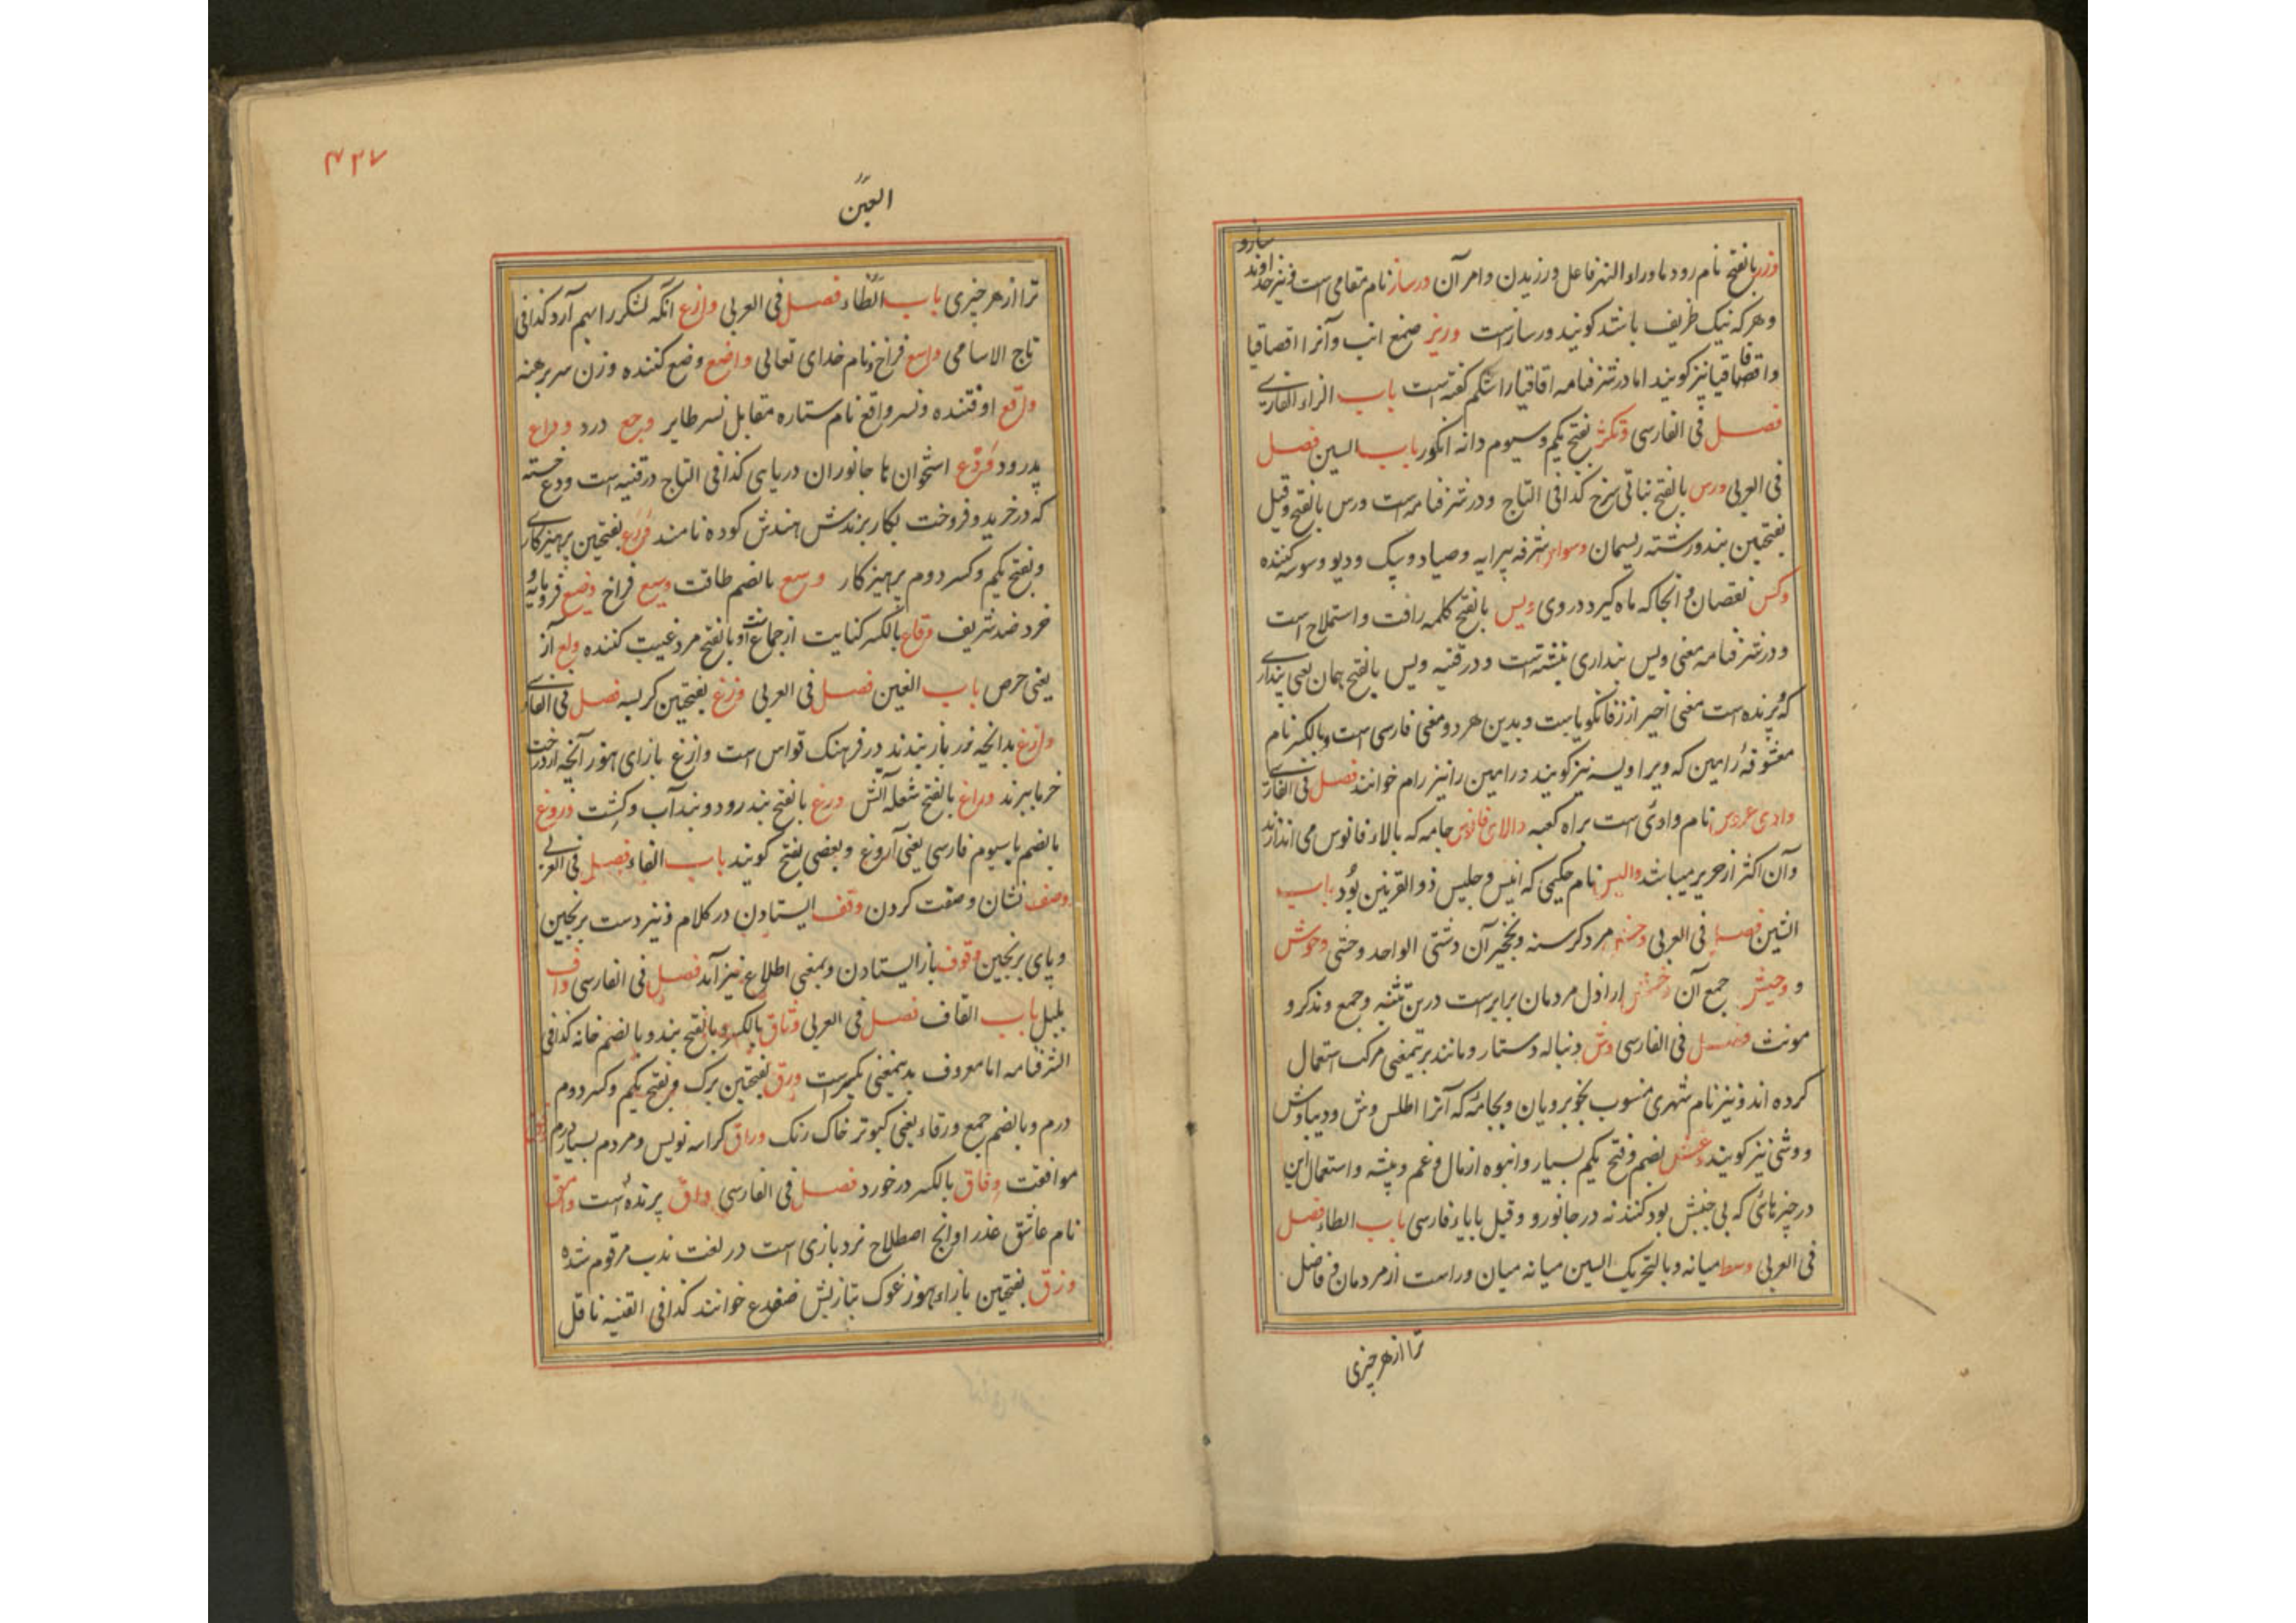 وزر بالفتح نام رود ماوراء النهر فاعل ورزیدن وامر آن درساز نام مقامی است و نیز خداوند سازو
و هر که نیک ظریف باشد کویند ورسازست وریز صمغ انب وآنرا اقصاقیا
واقصاقیا نیز کویند اما در شرفنامه اقاقیا را شکم کفته است باب الزاء الفارسی
فصل فی الفارسی وتکژ بفتح یکم وسیوم دانه انکور باب السین فصل
فی العربی ورس بالفتح نباتی سرخ کذا فی التاج ودر شرفنامه است ورس بالفتح وقیل
بفتحتین بند ورشته ریسمان وسواس شرفه پیرایه وصیاد وپیک ودیو وسوسه کننده
وکس نقصان و انجا که ماه کیرد در وی ویس بالفتح کلمه رافت واستملاح است
ودر شرفنامه معنی ویس پنداری نبشته است ودر قنیه ویس بالفتح همان یعنی پنداری
که پرنده است معنی اخیر از زفانکویاست وبدین هر دو معنی فارسی است وبالکسر نام
معشوقهٔ رامین که ویرا ویسه نیز کویند ورامین را نیز رام خوانند فصل فی الفارسی
وادی عروس نام وادئ است براه کعبه والای فانوس جامه که بالاء فانوس می اندازند
وآن اکثر از حریر میباشد والیس نام حکیمی که انیس وجلیس ذوالقرنین بُود باب
الشین فصل فی العربی وحش مرد کرسنه ونخچیر آن دشتی الواحد وحشی وحوش
و وحیش جمع آن وخش اراذل مردمان برابرست درین تثنیه وجمع ومذکر و
مونث فصل فی الفارسی وش دنباله دستار ومانند برینمعنی مرکب استعمال
کرده اند و نیز نام شهری منسوب بخوبرویان وبجامهٔ که آنرا اطلس وش ودیباوش
ووشی نیز کویند بضم وفتح یکم بسیار وانبوه از مال وغم وپیشه واستعمال این
در چیزهائی که بی جنبش بود کنند نه در جانور و وقیل با باء فارسی باب الطاء فصل
فی العربی وسط میانه وبالتحریک السین میانه میان وراست از مردمان و فاضل
ترا از هر چیزی
۴۳۷
العین
ترا از هر چیزی باب الظاء فصل فی العربی وازع آنکه لشکر را بهم آرد کذا فی
تاج الاسامی واسع فراخ ونام خدای تعالی واضع وضع کننده وزن سر برهنه
واقع اوفتنده ونسر واقع نام ستاره مقابل نسر طایر وجع درد وداع
پدرود ودع استخوان ها جانوران دریایی کذا فی التاج در قنیه است ودع خسته
که در خرید وفروخت بکار برندش هندش کوده نامند ورع بفتحتین پرهیزکاری
وبفتح یکم وکسر دوم پرهیزکار وسع بالضم طاقت وسیع فراخ وضیع فرومایه و
خرد ضد شریف وقاع بالکسر کنایت از جماع است و بالفتح مرد غیبت کننده ولع آز
یعنی حرص باب الغین فصل فی العربی وزغ بفتحتین کربسه فصل فی الفارسی
وازغ بدانچه رز باز بندند در فرهنک قواس است وازغ بازای هوز آنچه از درخت
خرما ببرند وراغ بالفتح شعله آتش ورغ بالفتح بند رود وبند آب وکشت وروغ
بالضم با سیوم فارسی یعنی آروغ وبعضی بفتح کویند باب الفاء فصل فی العربی
وصف نشان وصفت کردن وقف ایستادن در کلام و نیز دست برنجین
وپای برنجین وقوف باز ایستادن وبمعنی اطلاع نیز آید فصل فی الفارسی واف
بلبل باب القاف فصل فی العربی وثاق بالکسر وبالفتح بند وبالضم خانه کذا فی
الشرفنامه اما معروف بدینمعنی بکسر است ورق بفتحتین برک وبفتح یکم وکسر دوم
درم وبالضم جمع ورقاء یعنی کبوتر خاک رنک وراق کراسه نویس ومردم بسیار درم
موافقت وفاق بالکسر درخورد فصل فی الفارسی واق پرندهٔ است وامق
نام عاشق عذرا وانج اصطلاح نردبازی است در لغت ندب مرقوم شده
وزق بفتحتین بازاء هوز غوک بتازیش ضفدع خوانند کذا فی القنیه ناقل